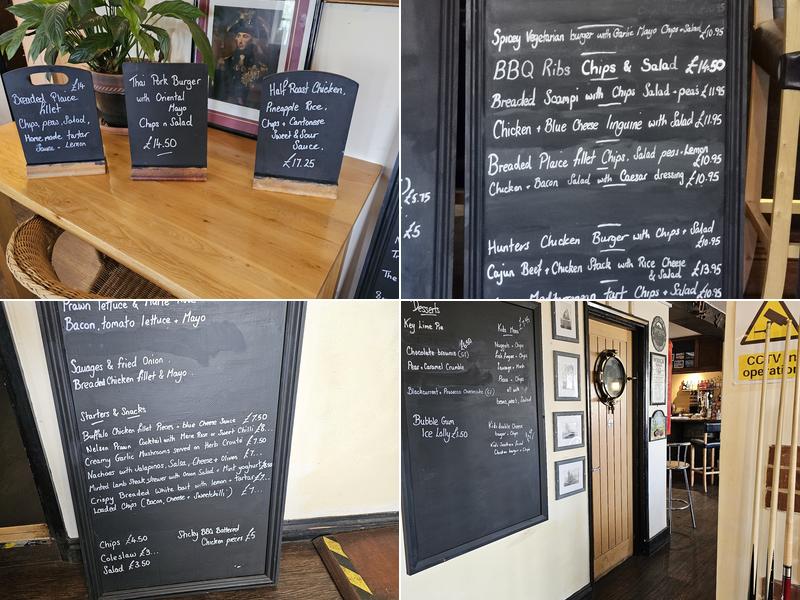 £14
Breaded Plaice
fillet
Chips, peas, Salad,
Home made tartar
Sauce - Lemon
Thai Pork Burger
with Oriental
Mayo
Chips n Salad
£14.50
Half Roast Chicken,
Pineapple Rice,
Chips + Cantonese
Sweet & Sour
Sauce.
£17.25
£5.75
£5
Spicey Vegetarian burger with Garlic Mayo Chips + Salad £10.95
BBQ Ribs Chips & Salad £14.50
Breaded Scampi with Chips Salad - peas £11.95
Chicken + Blue Cheese linguine with Salad £11.95
Breaded Plaice fillet Chips. Salad peas - Lemon
£10.95
Chicken + Bacon Salad with Caesar dressing £10.95
Hunters Chicken Burger with Chips + Salad
£10.95
Cajun Beef + Chicken Stack with Rice Cheese
& Salad £13.95
Mediterranean tart Chips + Salad £10.95
Prawn lettuce &
Bacon, tomato lettuce + Mayo
Sausages & fried Onion
Breaded Chicken fillet & Mayo
Starters & Snacks
Buffalo Chicken fillet Pieces + blue Cheese Sauce £7.50
Nelson Prawn Cocktail with Marie Rose or Sweet Chilli £8...
Creamy Garlic Mushrooms served on Herb Crouts £7.50
Nachoes with Jalapinos, Salsa, Cheese + Olives £7...
Minted Lamb Steak skewer with Onion Salad + Mint yoghurt
Crispy Breaded White bait with lemon + tartar £7...
Loaded Chips (Bacon, Cheese + Sweetchilli) £7...
Chips £4.50
Coleslaw £3...
Salad £3.50
Sticky BBQ Battered
Chicken pieces £5
Desserts
Key Lime Pie
Chocolate brownie (GF)
Pear + Caramel Crumble
Blackcurrant + Prosecco Cheesecake (GF)
Bubble Gum
Ice Lolly £1.50
Kids Menu
Nuggets + Chips
Sausage + Mash
Pizza + Chips
all with
beans, peas, Salad
Kids double Cheese
burger + Chips
Kids Southern fried
Chicken burger + Chips
CCTV in
operation